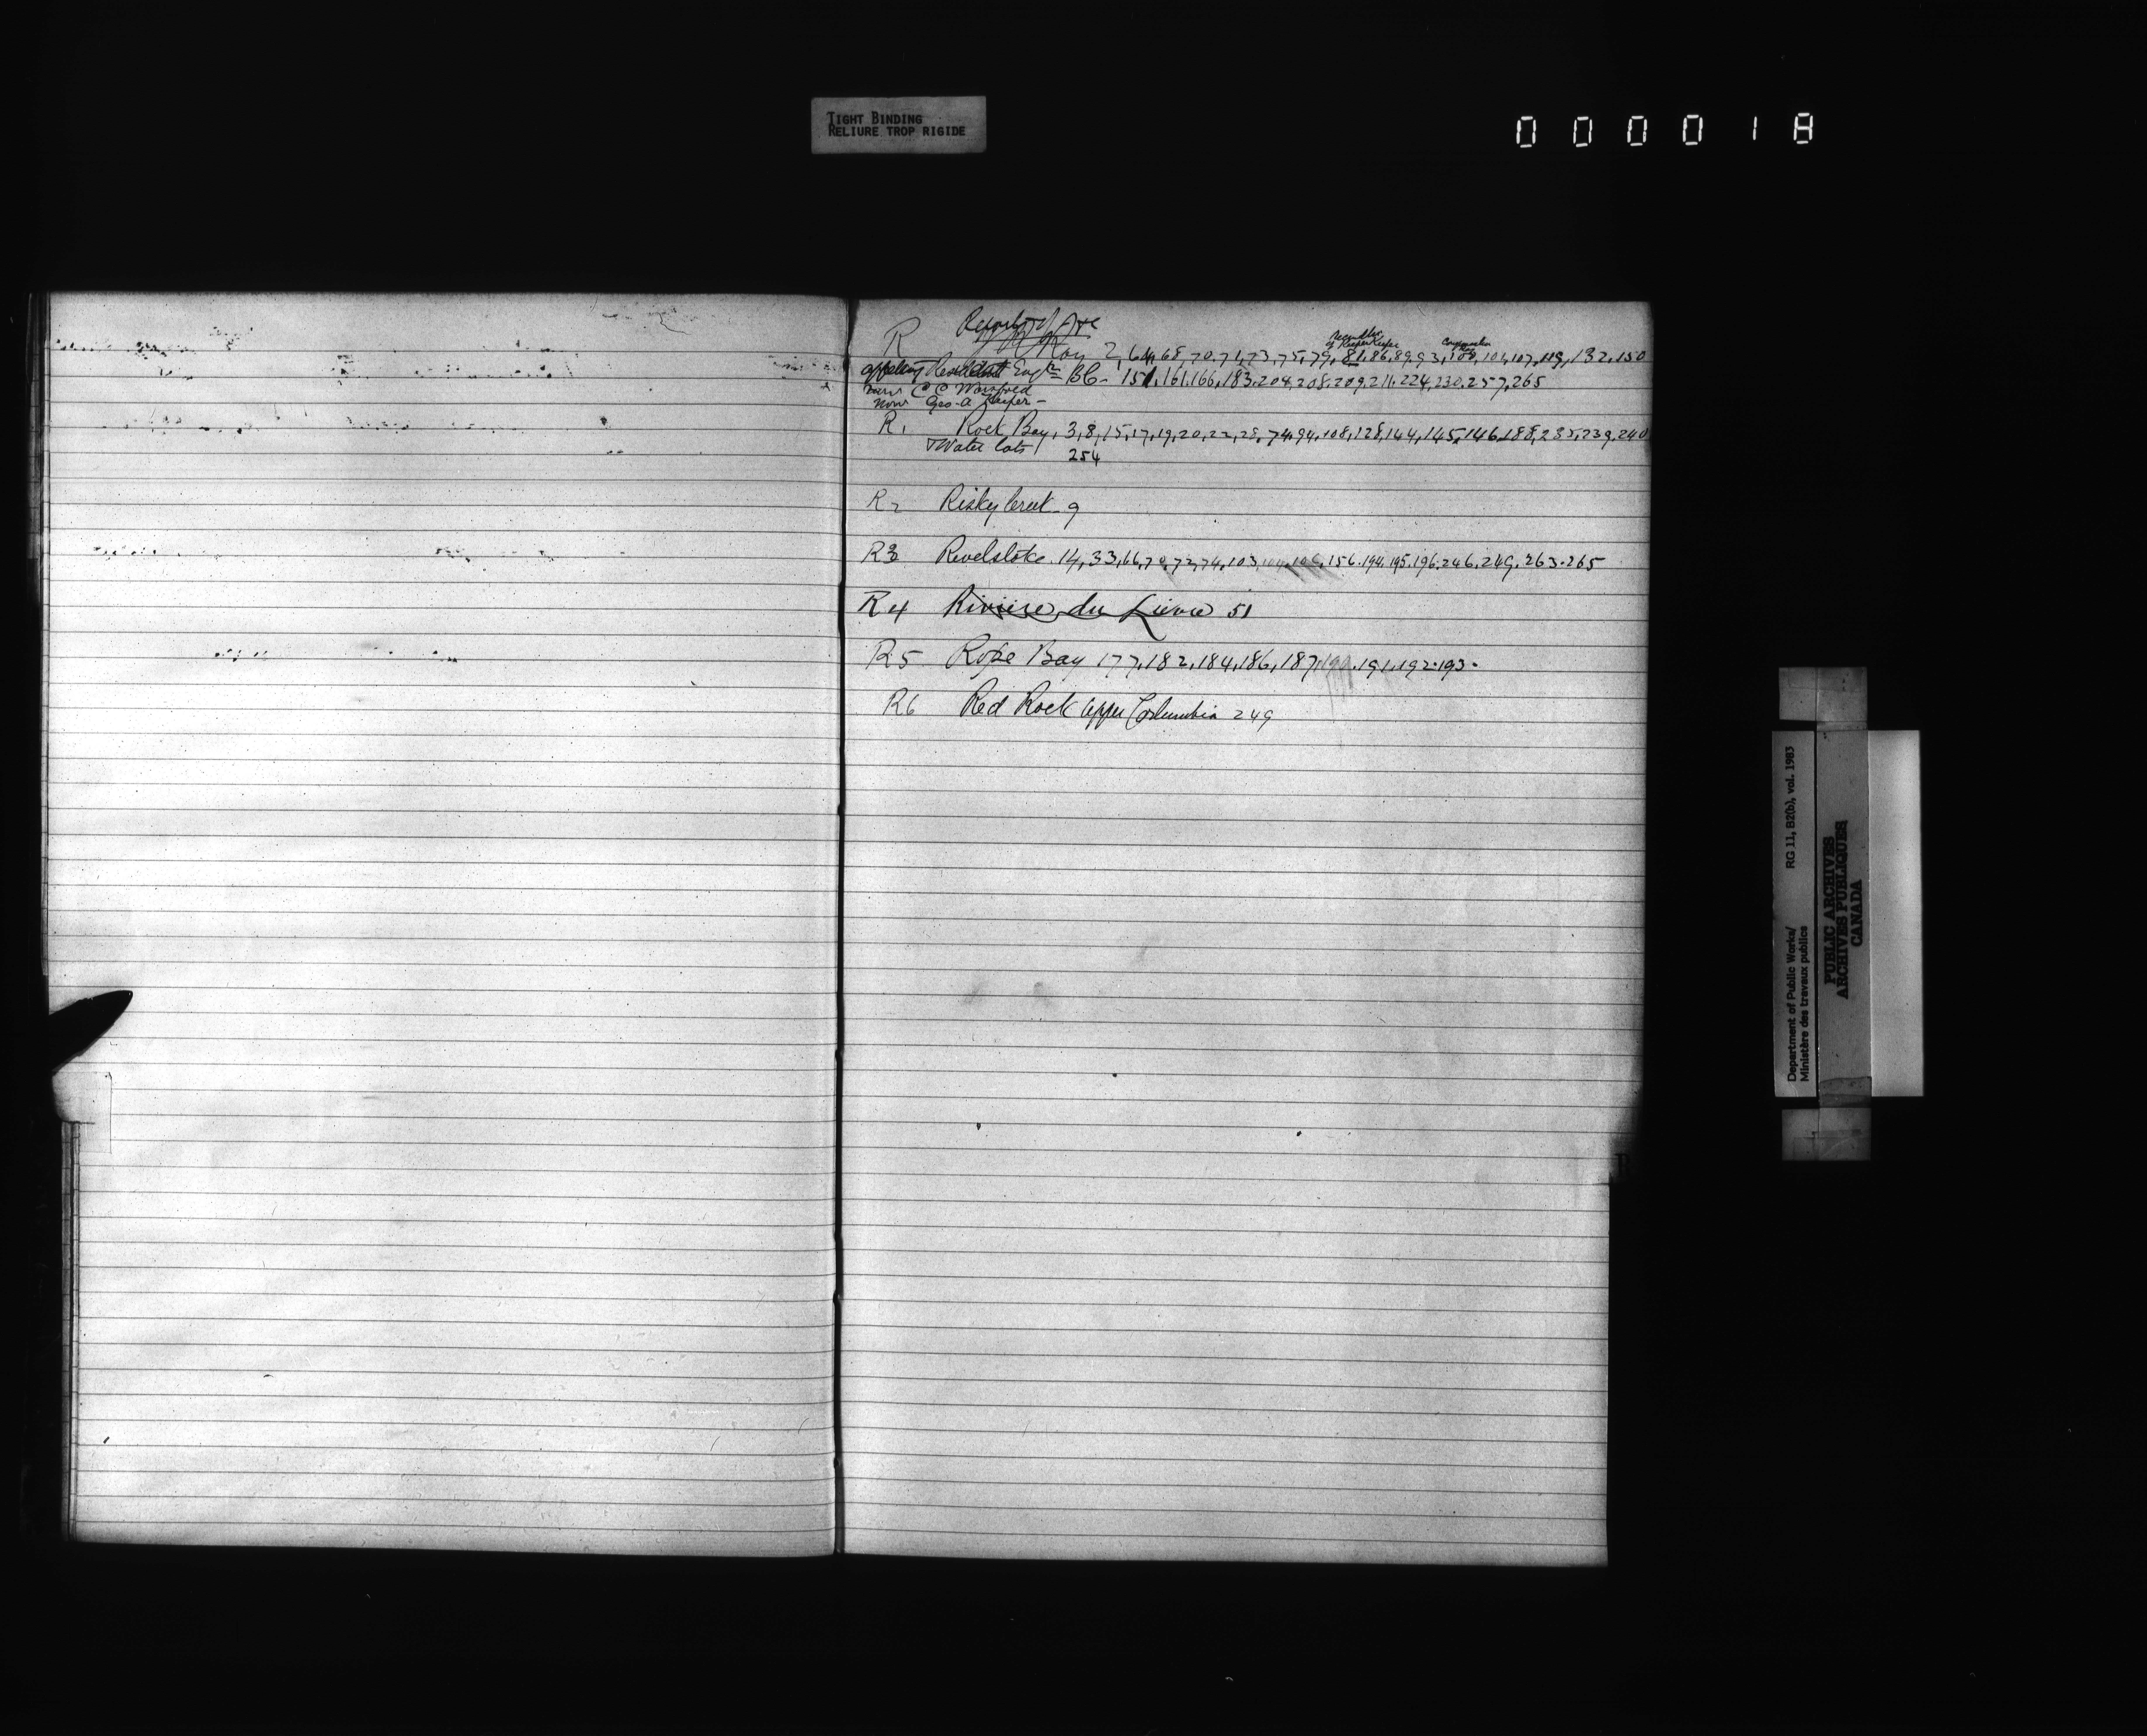 TIGHT BINDING
RELIURE TROP RIGIDE
000018
R
Roy 2, 64, 68, 70, 71, 73, 75, 79, 81, 86, 89, 93, 100, 101, 107, 119, 132, 150
Resident Engr BC - 151, 161, 166, 183, 204, 208, 209, 211, 224, 230, 257, 265
now Geo. A Keefer -
R1 Rock Bay, 3, 8, 15, 17, 19, 20, 22, 28, 74, 94, 108, 128, 144, 145, 146, 188, 235, 239, 240
Water lots 254
R2 Risky Creek - 9
R3 Revelstoke. 14, 33, 66, 70, 72, 74, 103, 104, 106, 156. 194. 195. 196. 246. 249. 263. 265
R4 Riviere du Lievre 51
R5 Rope Bay 177, 182, 184, 186, 187, 190. 191. 192. 193.
R6 Red Rock Upper Columbia 249
R
Department of Public Works/ RG 11, B2(b), vol. 1983
Ministère des travaux publics
PUBLIC ARCHIVES
ARCHIVES PUBLIQUES
CANADA